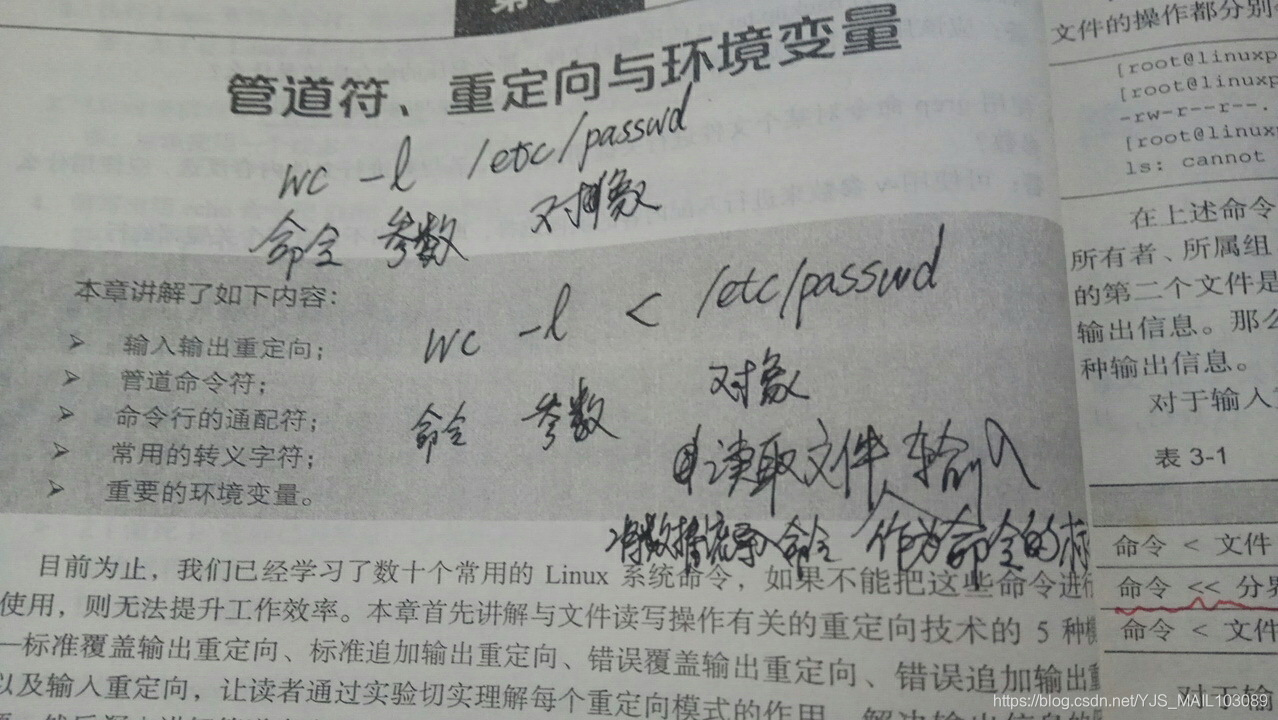 管道符、重定向与环境变量
wc -l /etc/passwd
命令 参数 对象
本章讲解了如下内容：
➢ 输入输出重定向；
➢ 管道命令符；
➢ 命令行的通配符；
➢ 常用的转义字符；
➢ 重要的环境变量。
wc -l < /etc/passwd
命令 参数 对象
读取文件 输入
将数据流导入命令 作为命令的标
目前为止，我们已经学习了数十个常用的 Linux 系统命令，如果不能把这些命令进行
使用，则无法提升工作效率。本章首先讲解与文件读写操作有关的重定向技术的 5 种
—标准覆盖输出重定向、标准追加输出重定向、错误覆盖输出重定向、错误追加输出重
以及输入重定向，让读者通过实验切实理解每个重定向模式的作用，解决输出信息的
文件的操作都分别
[root@linuxp
[root@linuxp
-rw-r--r--.
[root@linux
ls: cannot
在上述命令
所有者、所属组
的第二个文件是
输出信息。那么
种输出信息。
对于输入
表 3-1
命令 < 文件
命令 << 分界
命令 < 文件
对于输
https://blog.csdn.net/YJS_MAIL103089